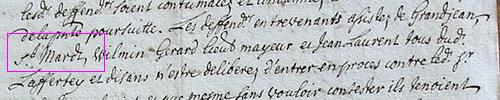 lesd. deffend. soient contumales et condamn
de lad. poursuitte. Les deffend. entrevenants asistez de Grandjean
St Mard, Wilmin Gerard lieut mayeur et Jean Laurent tous dud.
Laffertey et disans n'estre deliberez d'entrer en proces contre led. sr
et que mesme sans vouloir contester ils tenoient